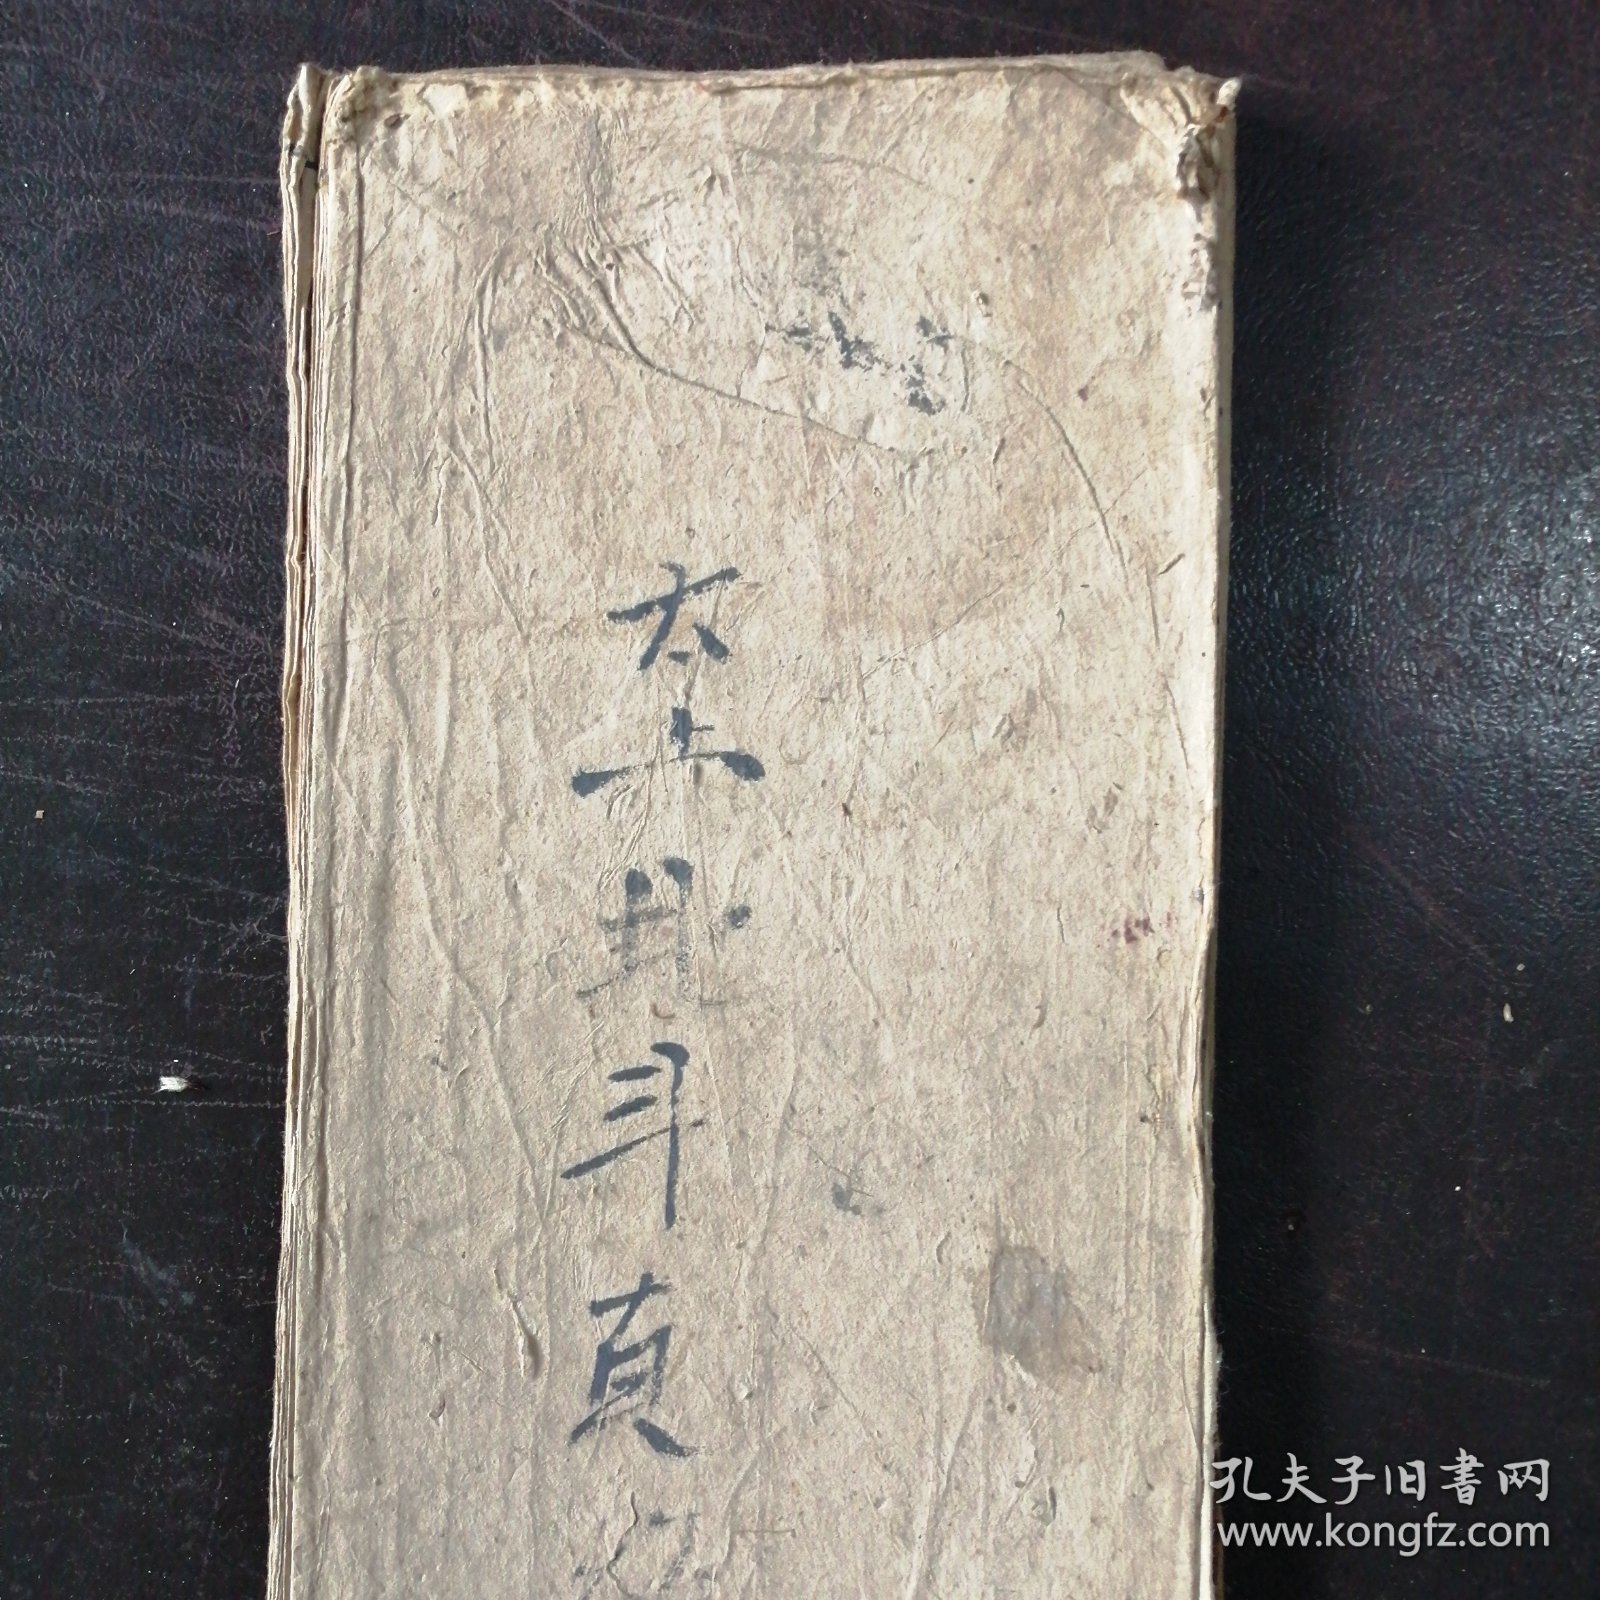 太上北斗真
孔夫子旧書网
www.kongfz.com